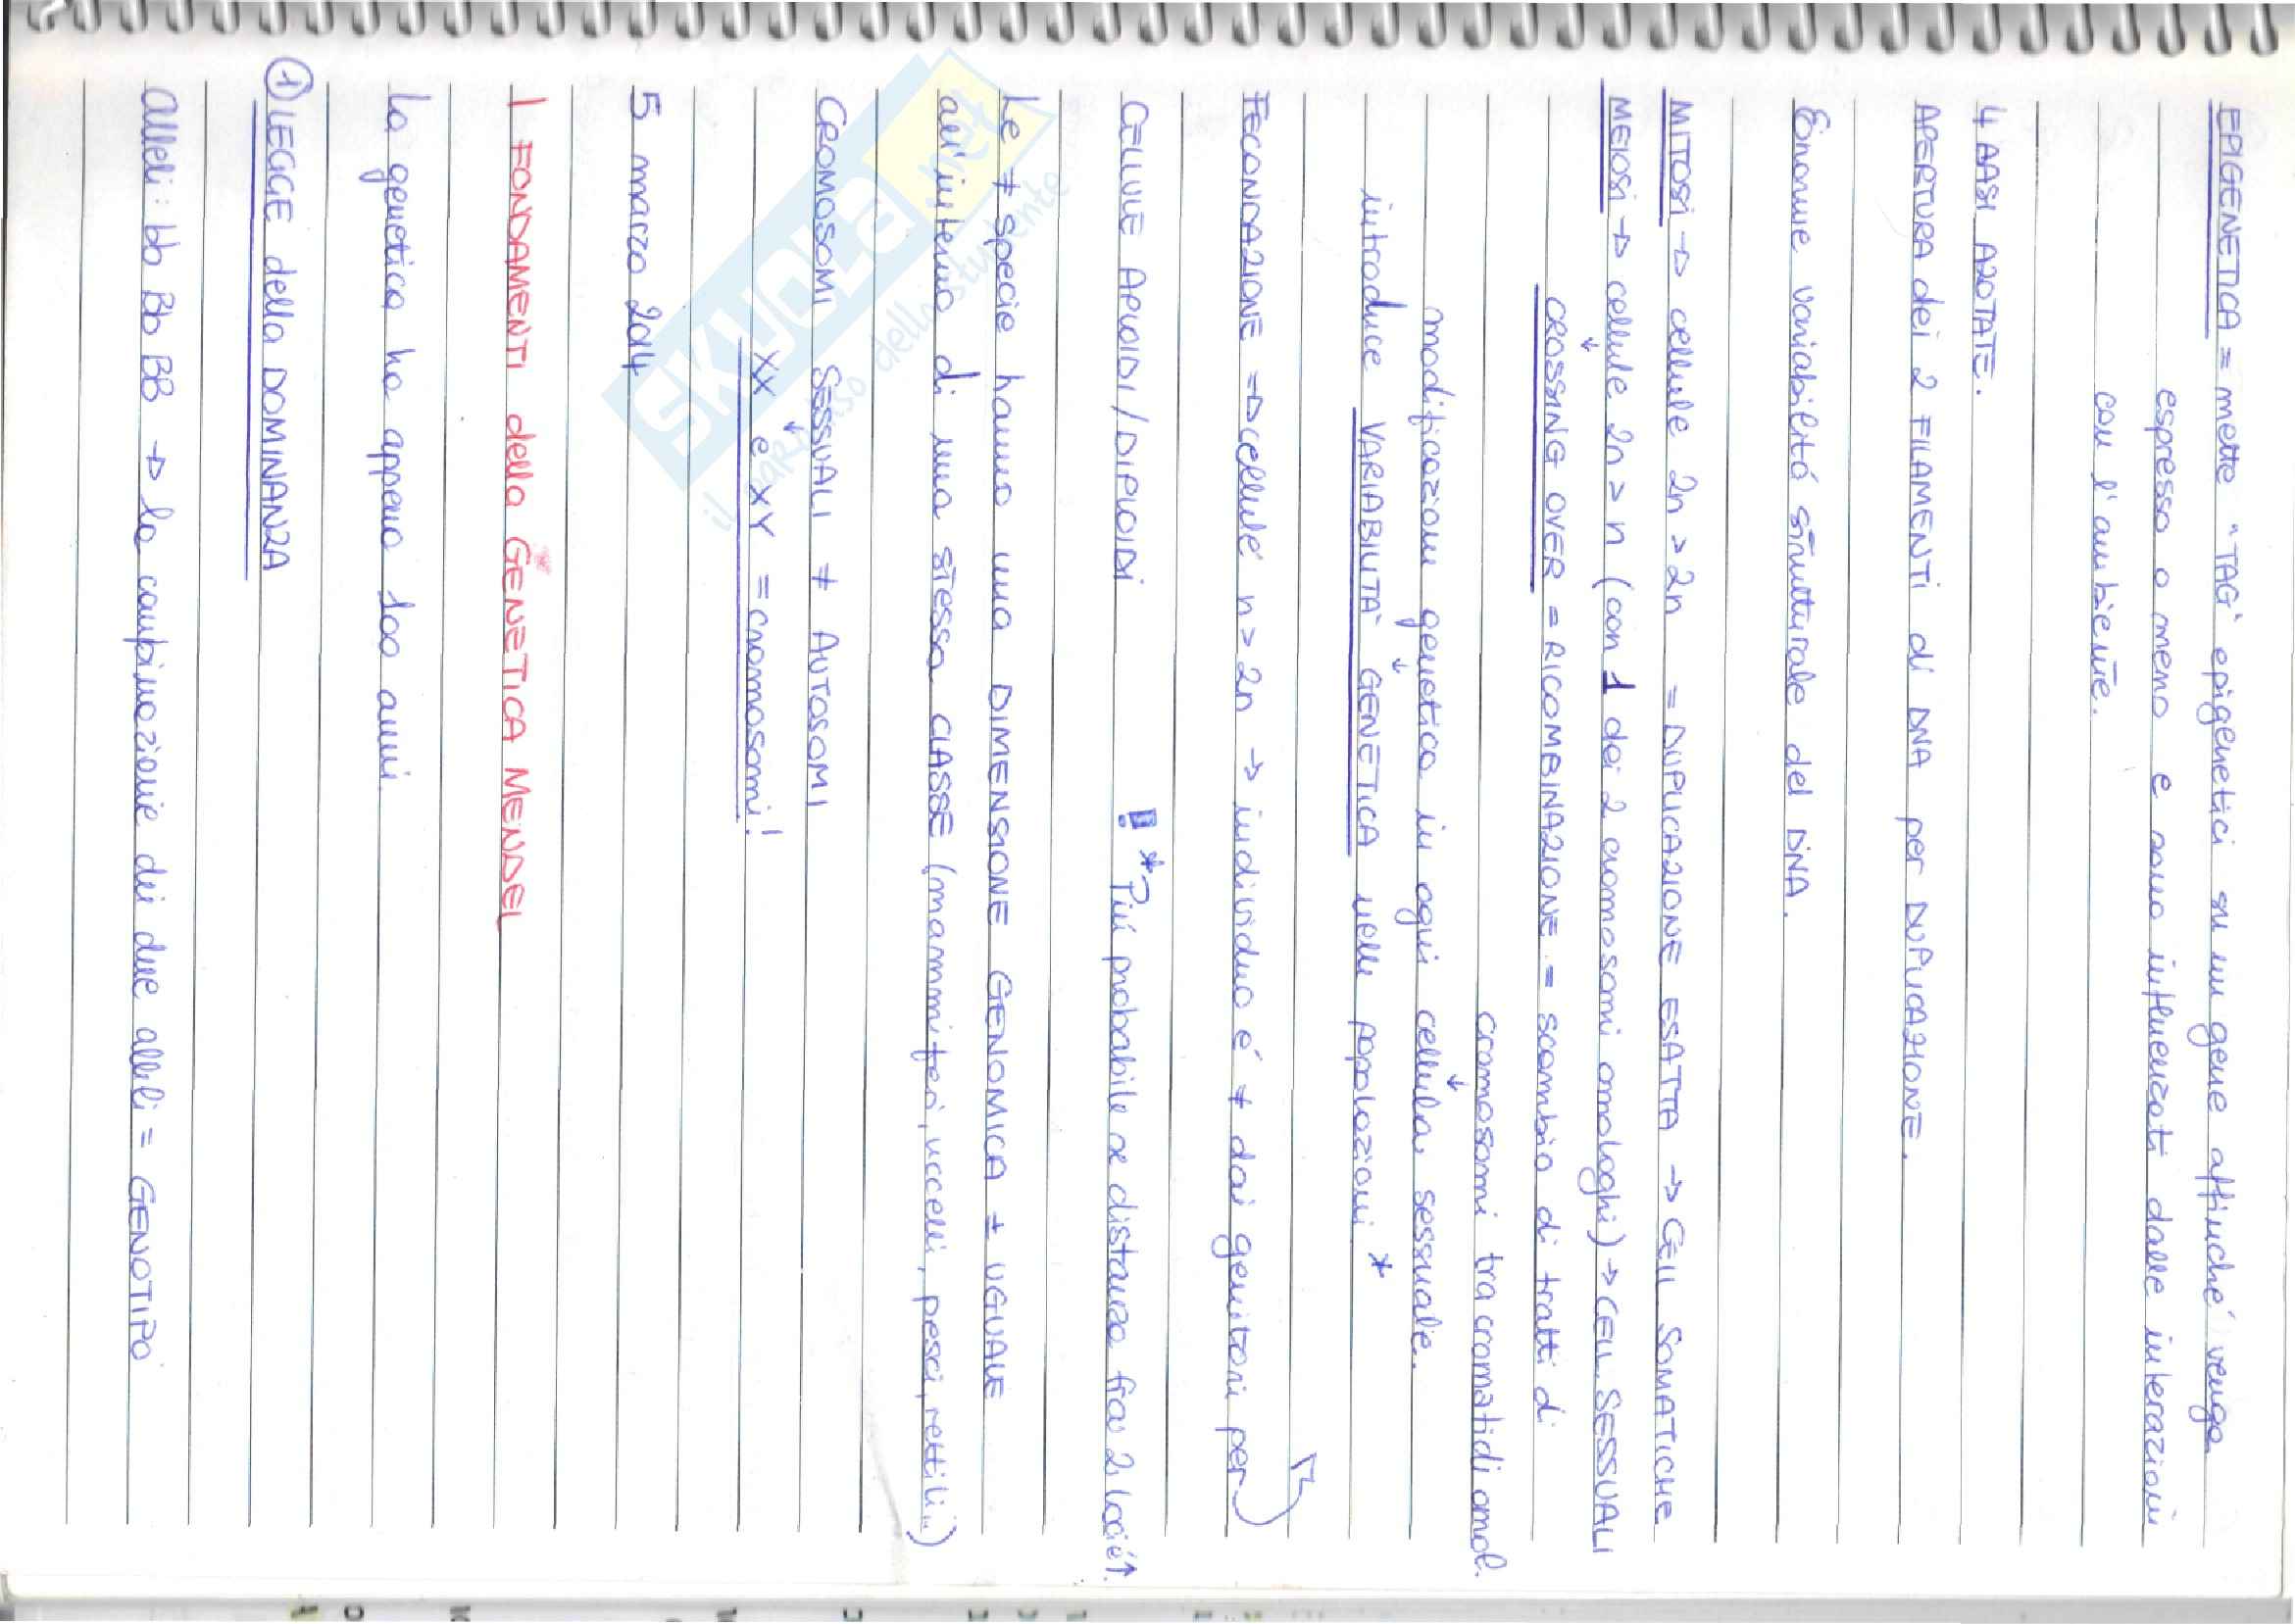 EPIGENETICA = mette "TAG" epigenetici su un gene affinché venga
espresso o meno e sono influenzati dalle interazioni
con l'ambiente.
4 BASI AZOTATE.
APERTURA dei 2 FILAMENTI di DNA per DUPLICAZIONE.
Enorme variabilità strutturale del DNA.
MITOSI → cellule 2n > 2n = DUPLICAZIONE ESATTA → CELL SOMATICHE
MEIOSI → cellule 2n > n (con 1 dei 2 cromosomi omologhi) → CELL. SESSUALI
↓
CROSSING OVER = RICOMBINAZIONE = scambio di tratti di
cromosomi tra cromatidi omol.
↓
modificazioni genetica in ogni cellula sessuale.
↓
introduce VARIABILITÀ GENETICA nelle popolazioni *
FECONDAZIONE → cellule n > 2n → individuo è ≠ dai genitori per
CELLULE APLOIDI/DIPLOIDI ! * Più probabile se distanza fra 2 loci è ↑.
Le ≠ specie hanno una DIMENSIONE GENOMICA ± UGUALE
all'interno di una stessa CLASSE (mammiferi, uccelli, pesci, rettili..)
CROMOSOMI SESSUALI ≠ AUTOSOMI
↓
XX e XY = cromosomi!
5 marzo 2014
I FONDAMENTI della GENETICA MENDEL
La genetica ha appena 100 anni.
① LEGGE della DOMINANZA
alleli: bb Bb BB → la combinazione dei due alleli = GENOTIPO
SKUOLA.net
il paradiso dello studente